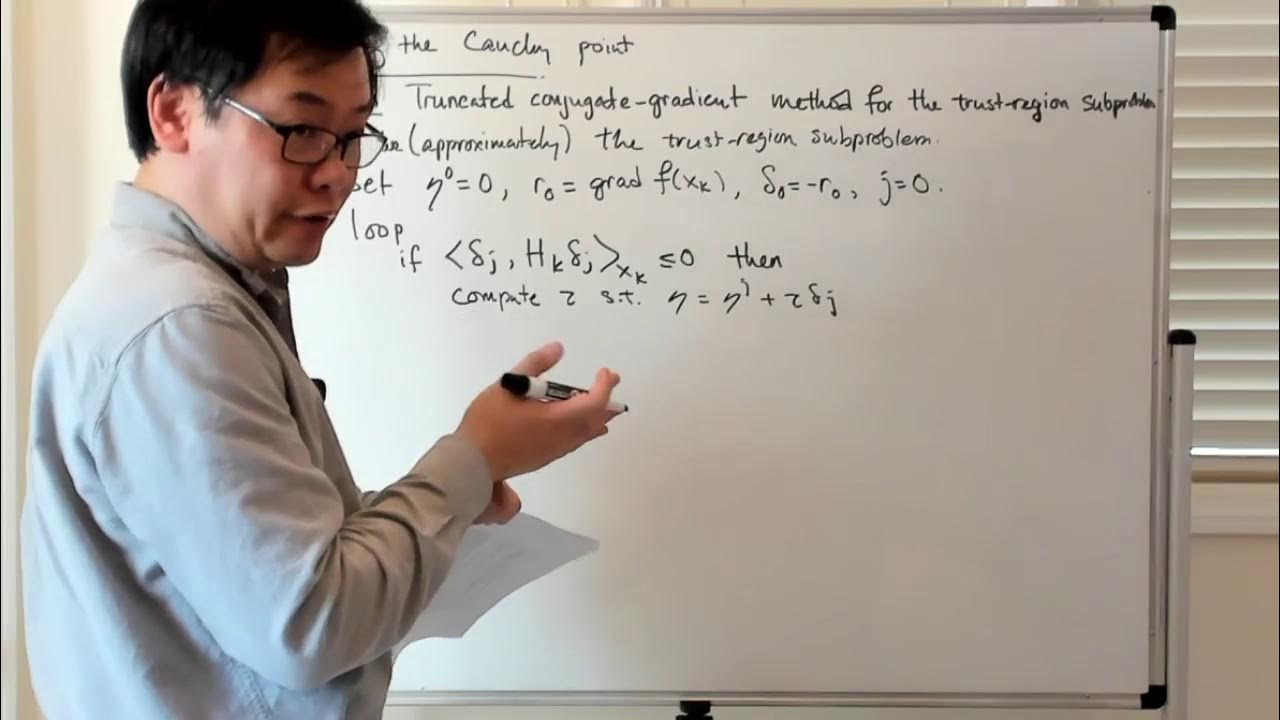 the Cauchy point
Truncated conjugate-gradient method for the trust-region subproblem
(approximately) the trust-region subproblem.
set η⁰=0, r₀ = grad f(xₖ), δ₀=-r₀, j=0.
loop
if <δⱼ, Hₖδⱼ>ₓₖ ≤0 then
compute τ s.t. η = ηʲ + τδⱼ